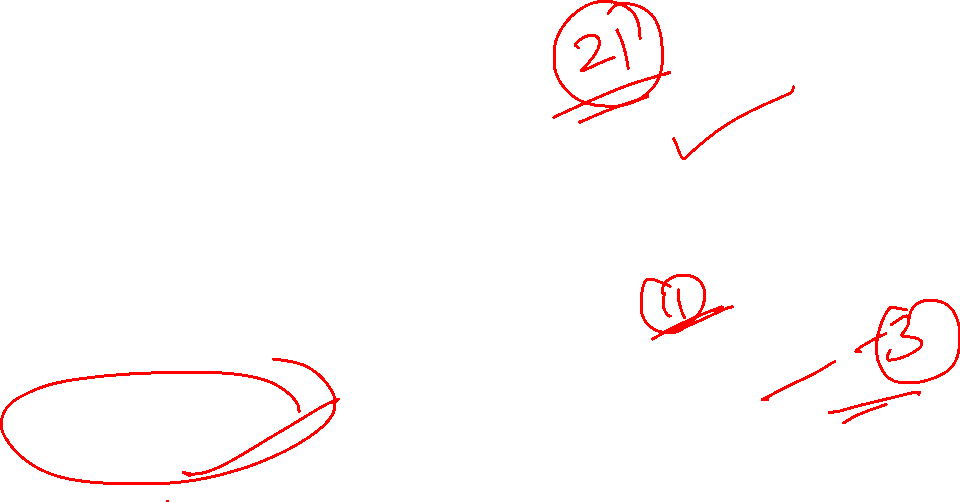 21
11
3